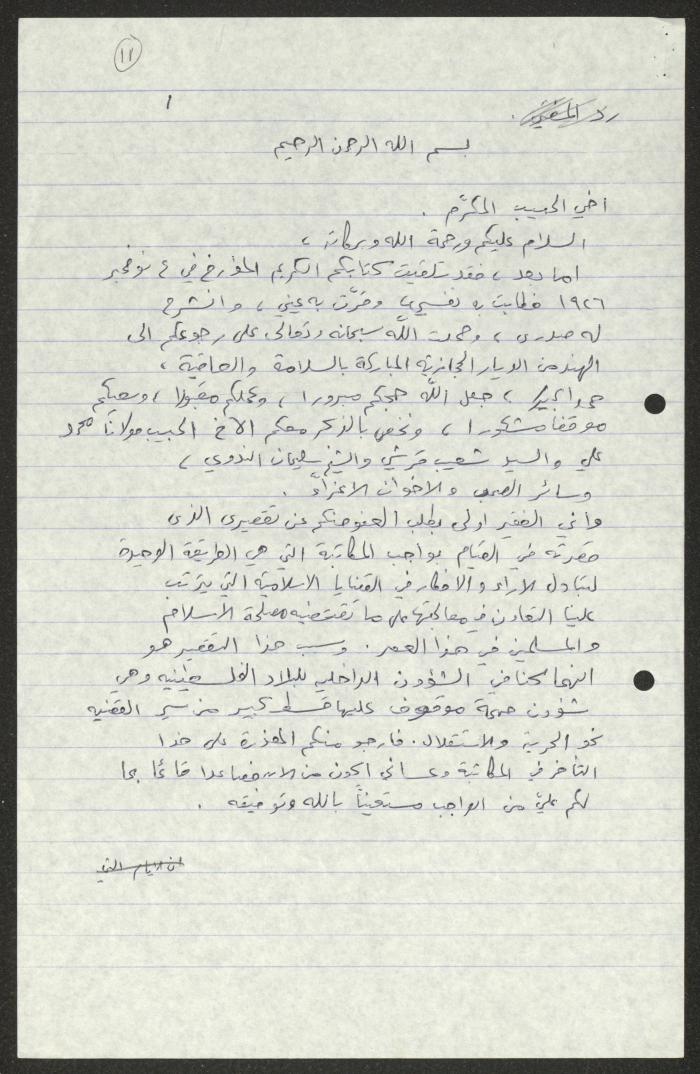 ١١
١
رد المفتي
بسم الله الرحمن الرحيم
اخي الحبيب المكرّم .
السلام عليكم ورحمة الله وبركاته ،
اما بعد ، فقد تلقيت كتابكم الكريم المؤرخ في ٤ نوفمبر
١٩٢٦ فطابت به نفسي وقرّت به عيني ، وانشرح
له صدري ، وحمدت اللّه سبحانه وتعالى على رجوعكم الى
الهند من الديار الحجازية المباركة بالسلامة والعافية ،
جعل اللّه حجكم مبرورا ، وعملكم مقبولا ، وسعيكم
موقفا مشكورا ، ونخص بالذكر معكم الاخ الحبيب مولانا محمد
علي والسيد شعيب قرشي والشيخ سليمان الندوي ،
وسائر الصحب والاخوان الاعزاء .
واني الفقير اولى بطلب العفو منكم عن تقصيري الذى
قصرته في القيام بواجب المكاتبة التي هي الطريقة الوحيدة
لتبادل الاراء والافكار في القضايا الاسلامية التي يترتب
علينا التعاون في معالجتها على ما تقتضيه مصلحة الاسلام
والمسلمين في هذا العصر . وسبب هذا التقصير هو
انهماكنا في الشؤون الداخليه للبلاد الفلسطينيه وهي
شؤون مهمة موقوف عليها قسط كبير من سير القضيه
نحو الحرية والاستقلال . فارجو منكم المعذرة على هذا
التأخر في المكاتبة وعساني اكون من الان فصاعدا قائما بما
لكم عليّ من الواجب مستعيناً بالله وتوفيقه .
ان الايام التي